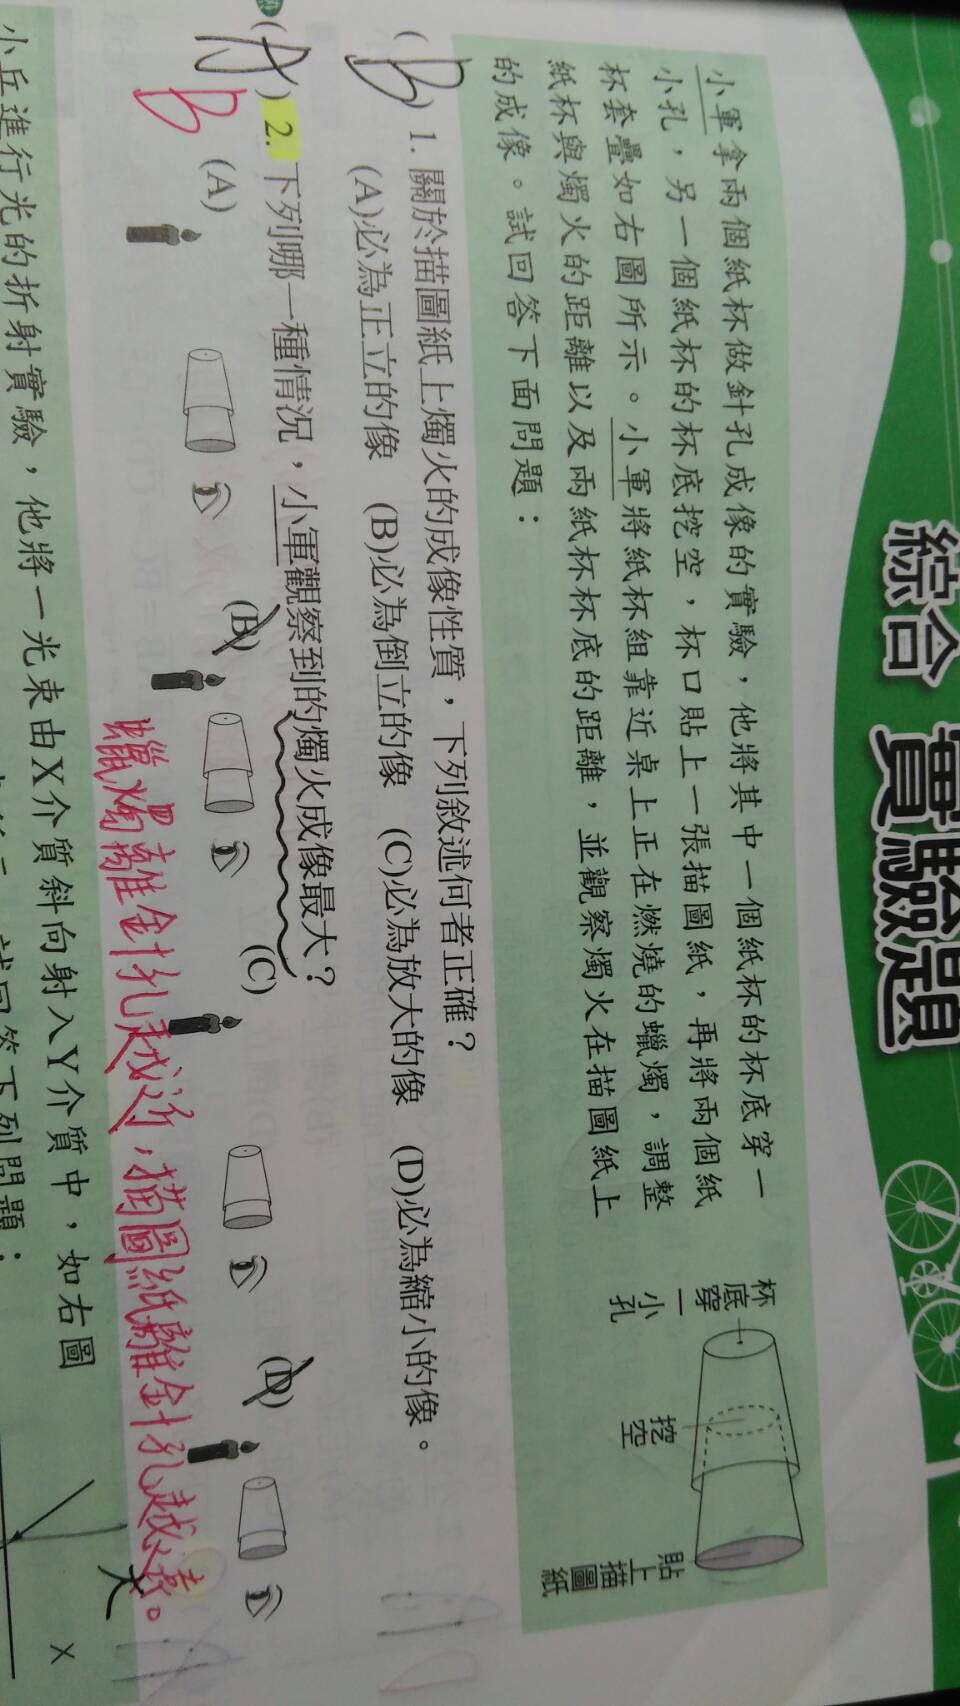 綜合實驗題
小軍拿兩個紙杯做針孔成像的實驗，他將其中一個紙杯的杯底穿一
小孔，另一個紙杯的杯底挖空，杯口貼上一張描圖紙，再將兩個紙
杯套疊如右圖所示。小軍將紙杯組靠近桌上正在燃燒的蠟燭，調整
紙杯與燭火的距離以及兩紙杯杯底的距離，並觀察燭火在描圖紙上
的成像。試回答下面問題：
杯底穿一小孔
挖空
貼上描圖紙
(B) 1. 關於描圖紙上燭火的成像性質，下列敘述何者正確？
(A)必為正立的像 (B)必為倒立的像 (C)必為放大的像 (D)必為縮小的像。
(A) 2. 下列哪一種情況，小軍觀察到的燭火成像最大？
B
(A) (B) (C) (D)
蠟燭離針孔越近，描圖紙離針孔越遠。
大
小兵進行光的折射實驗，他將一光束由X介質斜向射入Y介質中，如右圖
試回答下列問題：
X